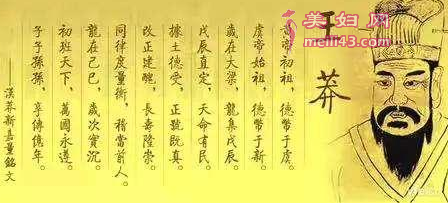 美妇网
meili43.com
王莽
黃帝初祖，德幣于虞。
虞帝始祖，德幣于新。
歲在大梁，龍集戊辰。
戊辰直定，天命有民。
據土德受，正號既真。
改正建醜，長壽隆崇。
同律度量衡，稽當前人。
龍在己巳，歲次實沉。
初班天下，萬國永遵。
子子孫孫，享傳億年。
——漢莽新嘉量銘文